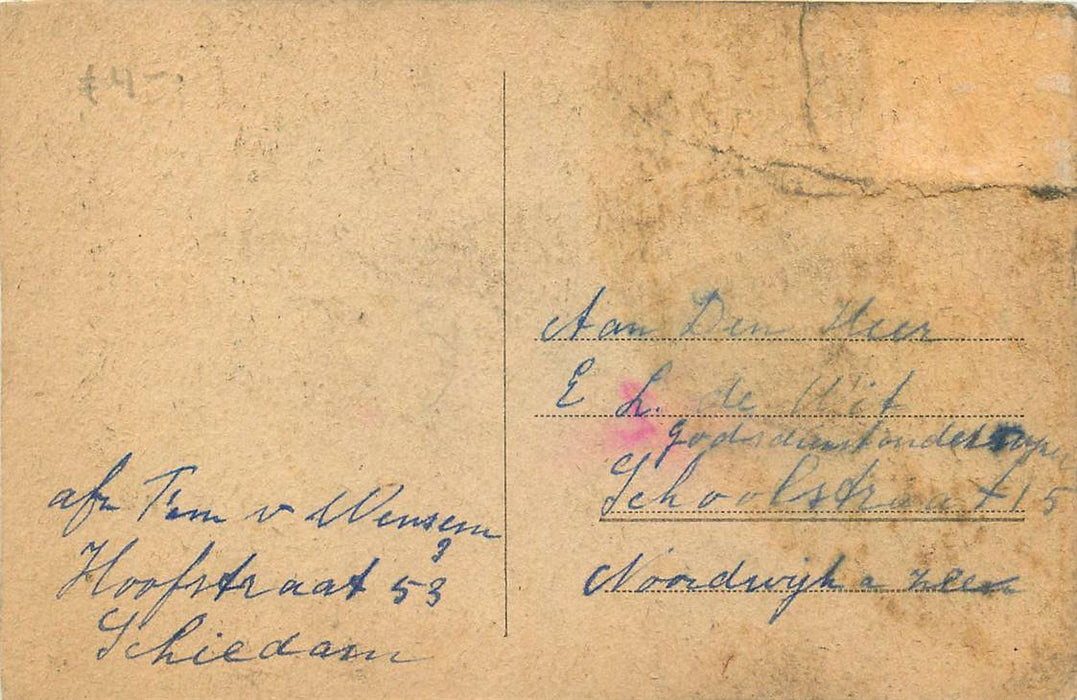 £4-
afz Fem v Wensem
Hoofstraat 53
Schiedam
Aan Den Heer
E L. de Wit
godsdienstonderwijzer
Schoolstraat 15
Noordwijk a zee